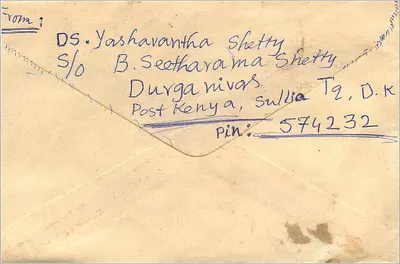 From:
DS. Yashavantha Shetty
S/o B. Seetharama Shetty
Durganivas
Post Kenya, Sullia Tq, D.K
Pin: 574232